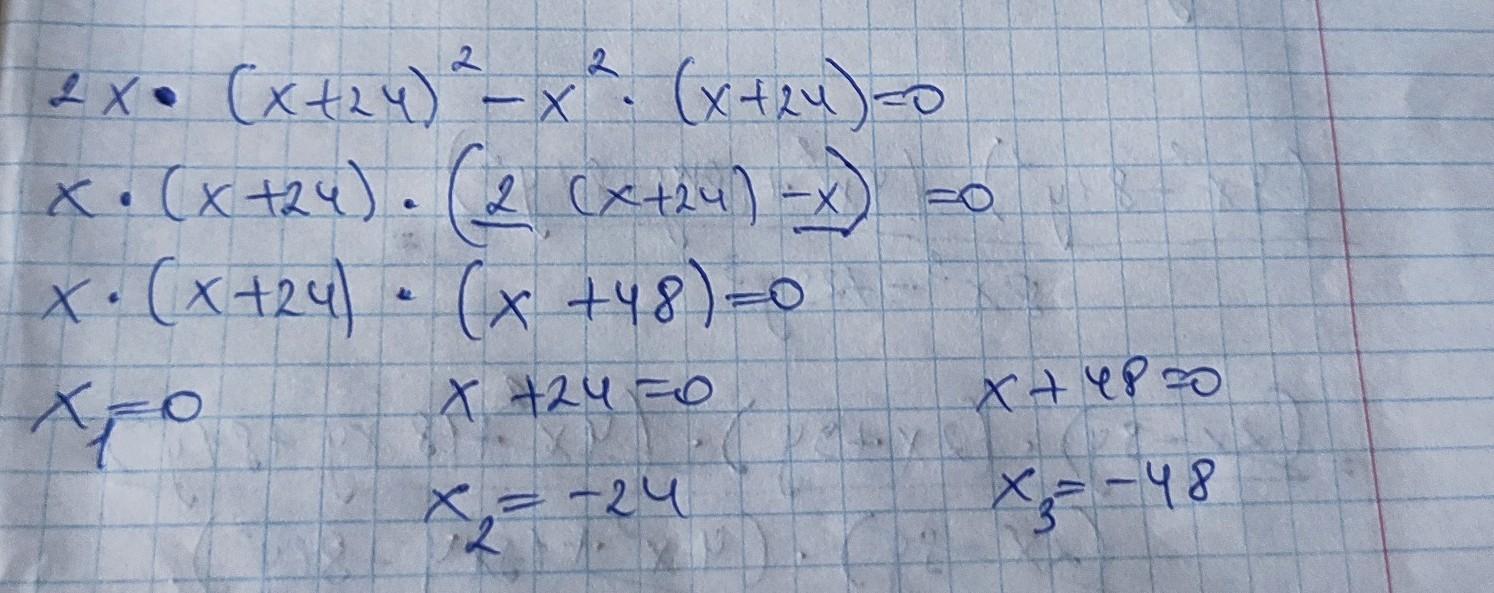 2x · (x+24)² − x² · (x+24)=0
x · (x+24) · (2 (x+24) −x) =0
x · (x+24) · (x +48)=0
x₁=0 x +24=0 x+48=0
x₂ = −24 x₃= −48